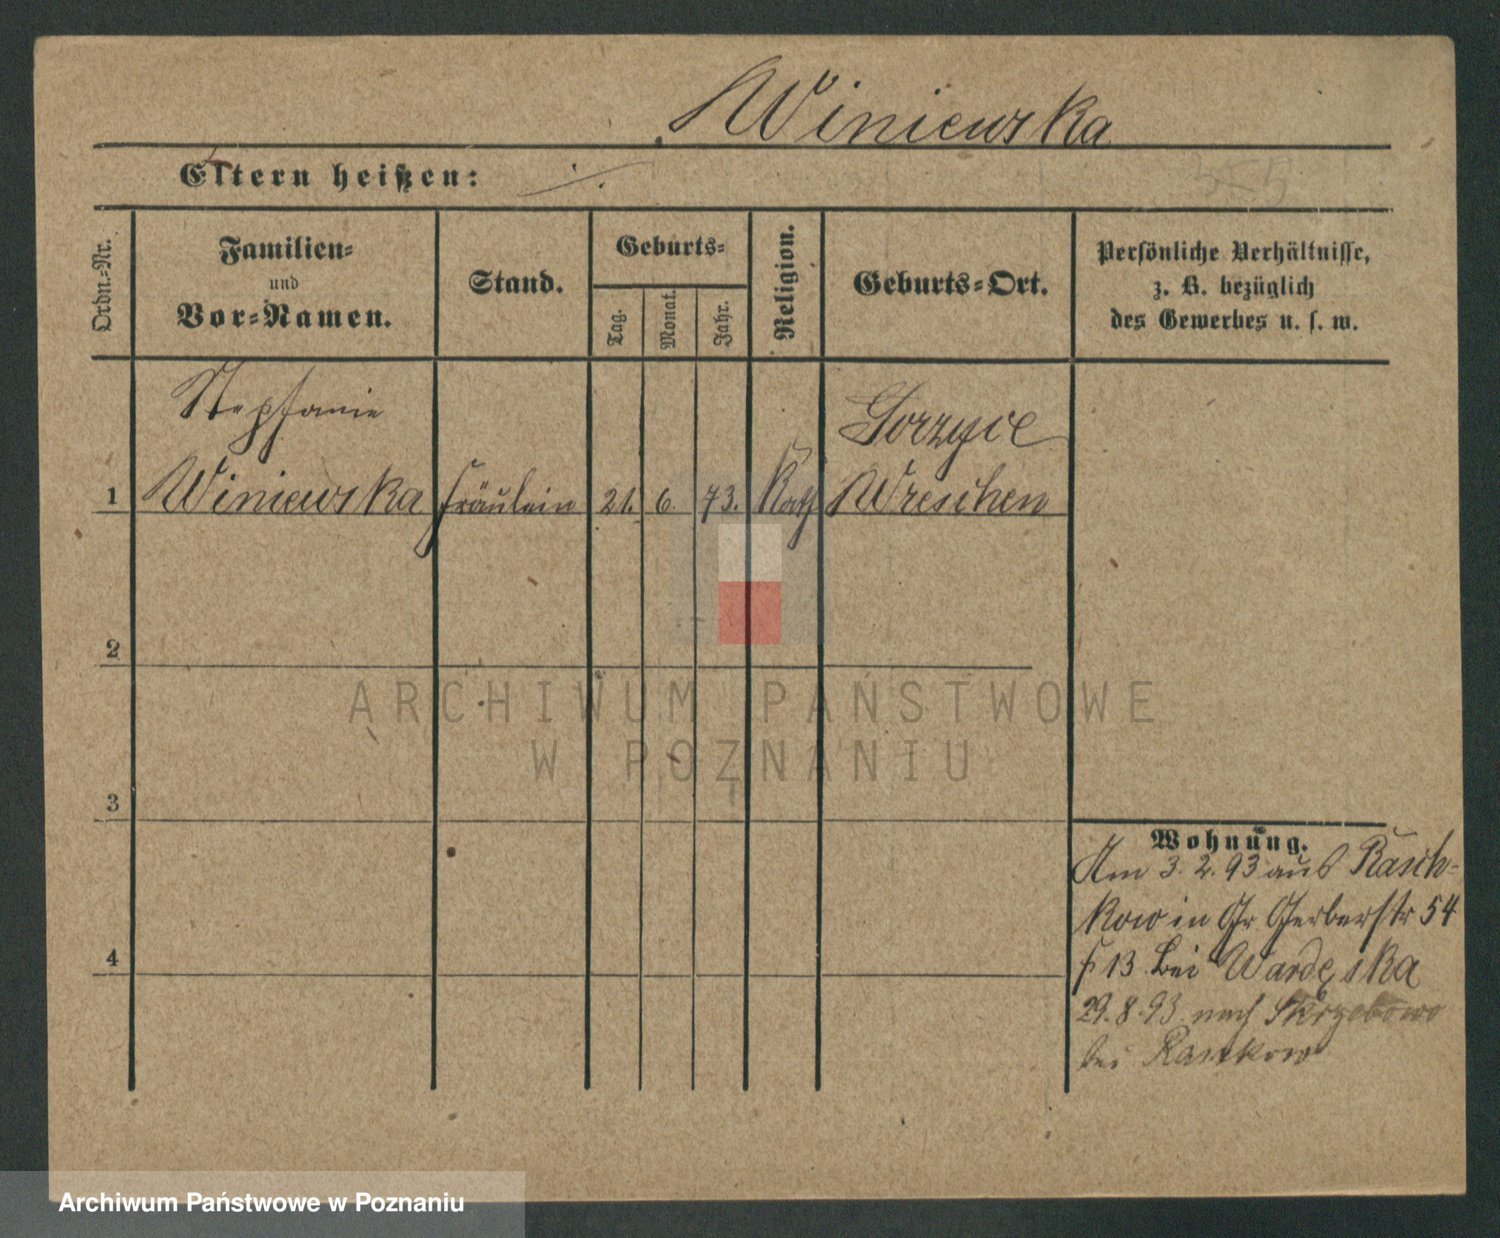 Winiewska
Eltern heißen: ./.
355
Ordn.-Nr.
Familien-
und
Vor-Namen.
Stand.
Geburts-
Tag.
Monat.
Jahr.
Religion.
Geburts-Ort.
Persönliche Verhältnisse,
z. B. bezüglich
des Gewerbes u. s. w.
Stephanie
Gorzyce
1 Winiewska Fräulein 21. 6 73. Kath Wreschen
2
ARCHIWUM PAŃSTWOWE
W POZNANIU
3
Wohnung.
Am 3. 2. 93 aus Rasch-
kow in Gr Gerberstr 54
13 bei Wardęska
4
29. 8. 93 nach Skrzebowo
bei Raszkow
Archiwum Państwowe w Poznaniu